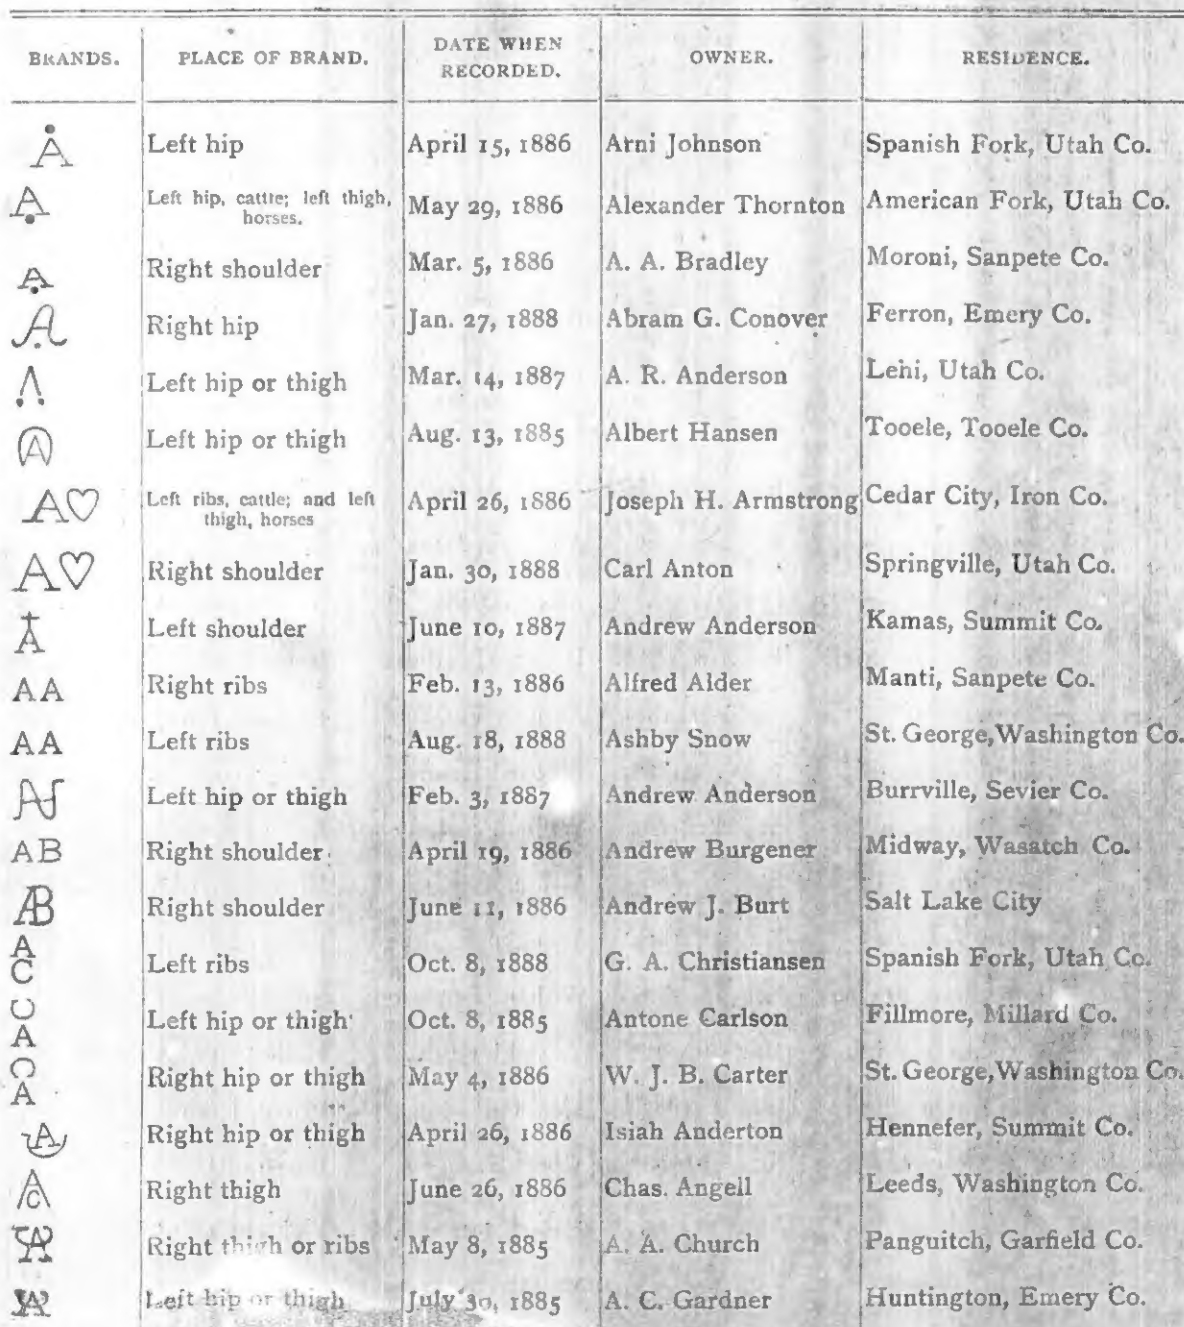 BRANDS. PLACE OF BRAND. DATE WHEN RECORDED. OWNER. RESIDENCE.
A Left hip April 15, 1886 Arni Johnson Spanish Fork, Utah Co.
A Left hip, cattle; left thigh, horses. May 29, 1886 Alexander Thornton American Fork, Utah Co.
A Right shoulder Mar. 5, 1886 A. A. Bradley Moroni, Sanpete Co.
A Right hip Jan. 27, 1888 Abram G. Conover Ferron, Emery Co.
Left hip or thigh Mar. 14, 1887 A. R. Anderson Lehi, Utah Co.
A Left hip or thigh Aug. 13, 1885 Albert Hansen Tooele, Tooele Co.
A♡ Left ribs, cattle; and left thigh, horses April 26, 1886 Joseph H. Armstrong Cedar City, Iron Co.
A♡ Right shoulder Jan. 30, 1888 Carl Anton Springville, Utah Co.
A Left shoulder June 10, 1887 Andrew Anderson Kamas, Summit Co.
AA Right ribs Feb. 13, 1886 Alfred Alder Manti, Sanpete Co.
AA Left ribs Aug. 18, 1888 Ashby Snow St. George, Washington Co.
Left hip or thigh Feb. 3, 1887 Andrew Anderson Burrville, Sevier Co.
AB Right shoulder April 19, 1886 Andrew Burgener Midway, Wasatch Co.
AB Right shoulder June 11, 1886 Andrew J. Burt Salt Lake City
A C Left ribs Oct. 8, 1888 G. A. Christiansen Spanish Fork, Utah Co.
A Left hip or thigh Oct. 8, 1885 Antone Carlson Fillmore, Millard Co.
A Right hip or thigh May 4, 1886 W. J. B. Carter St. George, Washington Co.
A Right hip or thigh April 26, 1886 Isiah Anderton Hennefer, Summit Co.
A C Right thigh June 26, 1886 Chas. Angell Leeds, Washington Co.
Right thigh or ribs May 8, 1885 A. A. Church Panguitch, Garfield Co.
Left hip or thigh July 30, 1885 A. C. Gardner Huntington, Emery Co.